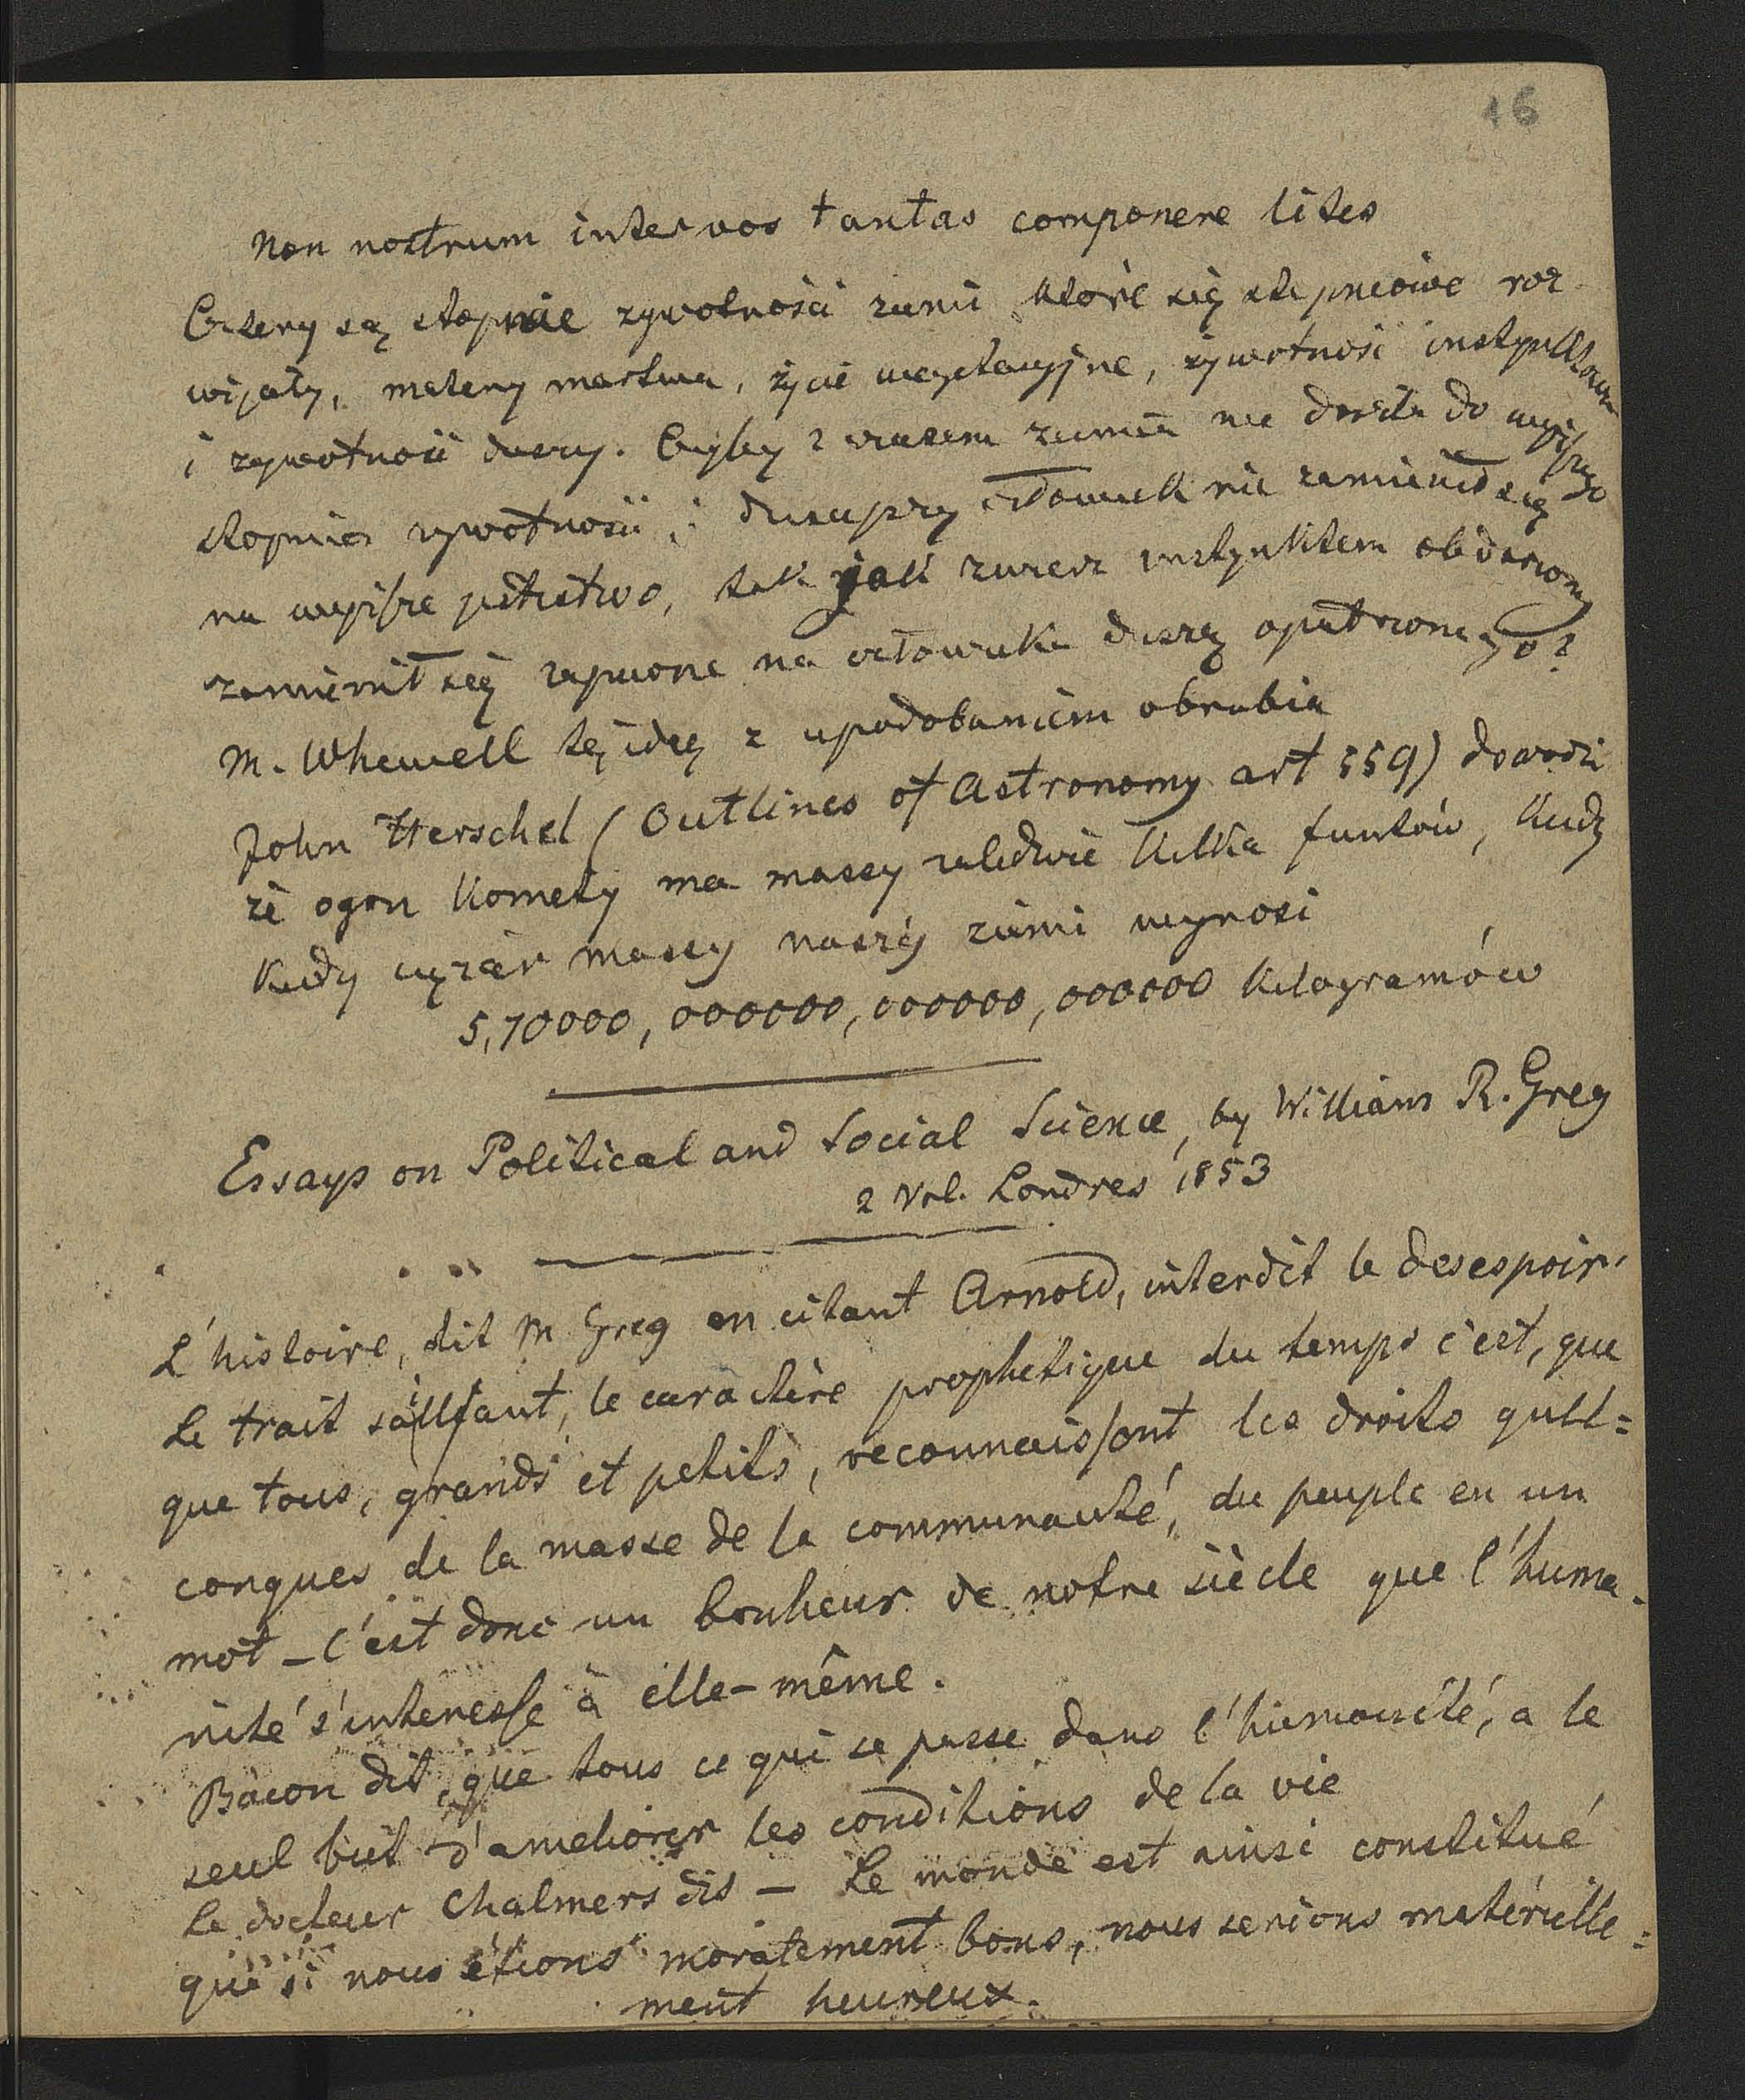 16
Non nostrum inter vos tantas componere lites
Cztery są stopnie zywotności ziemi które się stopniowe roz-
wijały, matery martwa, życie wegetacyjne, żywotność instynktowa
i zywotność duszy. Czyby z czasem ziemia nie doszła do wyższego
stopnia zywotności i duszy człowiek nie zamienił się
na wyższe jestestwo, tak jak zwierz instynktem obdarzony
zamienił się zapewne na człowieka duszą opatrzonego?
M. Whewell tę ideę z upodobaniem obrabia
John Herschel (Outlines of Astronomy art 559) dowodzi
że ogon Komety ma massy zaledwie kilka funtów, kiedy
kiedy ciężar massy naszéj ziemi wynosi
5,70000,000000,000000,000000 kilogramów
Essays on Political and Social Science, by William R. Greg
2 Vol. Londres 1853
L'histoire, dit M Greg en citant Arnold, interdit le desespoir.
Le trait saillant, le caractère prophetique du temps c'est, que
que tous, grands et petits, reconnaissont les droits quel=
conques de la masse de la communauté, du peuple en un
mot – C'est donc un bonheur de notre siècle que l'huma-
nité s'interesse à elle-même.
Bacon dit, que tous ce qui se passe dans l'humanité, a le
seul but d'ameliorer les conditions de la vie
Le docteur Chalmers dis – Le monde est ainsi constitué
que si nous étions moralement bons, nous serions matérielle=
ment heureux.